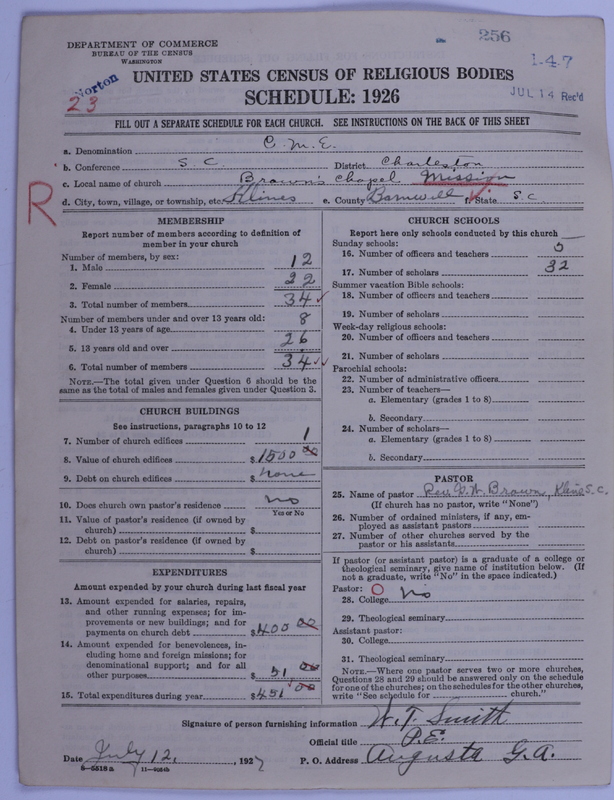 256
DEPARTMENT OF COMMERCE
BUREAU OF THE CENSUS
WASHINGTON
1-4-7
Norton
23
UNITED STATES CENSUS OF RELIGIOUS BODIES
JUL 14 Rec'd
SCHEDULE: 1926
FILL OUT A SEPARATE SCHEDULE FOR EACH CHURCH. SEE INSTRUCTIONS ON THE BACK OF THIS SHEET
a. Denomination C. M. E.
b. Conference S. C. District Charleston
c. Local name of church Brown's Chapel Mission
R
d. City, town, village, or township, etc. Klines e. County Barnwell f. State S. C.
MEMBERSHIP
Report number of members according to definition of
member in your church
Number of members, by sex:
1. Male 12
2. Female 22
3. Total number of members 34
Number of members under and over 13 years old:
4. Under 13 years of age 8
5. 13 years old and over 26
6. Total number of members 34
NOTE.—The total given under Question 6 should be the
same as the total of males and females given under Question 3.
CHURCH BUILDINGS
See instructions, paragraphs 10 to 12
7. Number of church edifices 1
8. Value of church edifices $1500 00
9. Debt on church edifices $ none
10. Does church own pastor's residence no
Yes or No
11. Value of pastor's residence (if owned by
church) $
12. Debt on pastor's residence (if owned by
church) $
EXPENDITURES
Amount expended by your church during last fiscal year
13. Amount expended for salaries, repairs,
and other running expenses; for im-
provements or new buildings; and for
payments on church debt $400 00
14. Amount expended for benevolences, in-
cluding home and foreign missions; for
denominational support; and for all
other purposes $ 51 00
15. Total expenditures during year $451 00
CHURCH SCHOOLS
Report here only schools conducted by this church
Sunday schools:
16. Number of officers and teachers 5
17. Number of scholars 32
Summer vacation Bible schools:
18. Number of officers and teachers
19. Number of scholars
Week-day religious schools:
20. Number of officers and teachers
21. Number of scholars
Parochial schools:
22. Number of administrative officers
23. Number of teachers—
a. Elementary (grades 1 to 8)
b. Secondary
24. Number of scholars—
a. Elementary (grades 1 to 8)
b. Secondary
PASTOR
25. Name of pastor Rev. Brown, Kline S. C.
(If church has no pastor, write "None")
26. Number of ordained ministers, if any, em-
ployed as assistant pastors
27. Number of other churches served by the
pastor or his assistants
If pastor (or assistant pastor) is a graduate of a college or
theological seminary, give name of institution below. (If
not a graduate, write "No" in the space indicated.)
Pastor:
28. College No
29. Theological seminary
Assistant pastor:
30. College
31. Theological seminary
NOTE.—Where one pastor serves two or more churches,
Questions 28 and 29 should be answered only on the schedule
for one of the churches; on the schedules for the other churches,
write "See schedule for church."
Signature of person furnishing information W. T. Smith
Official title P. E.
Date July 12, 1927 P. O. Address Augusta G.A.
8-5518a 11-9